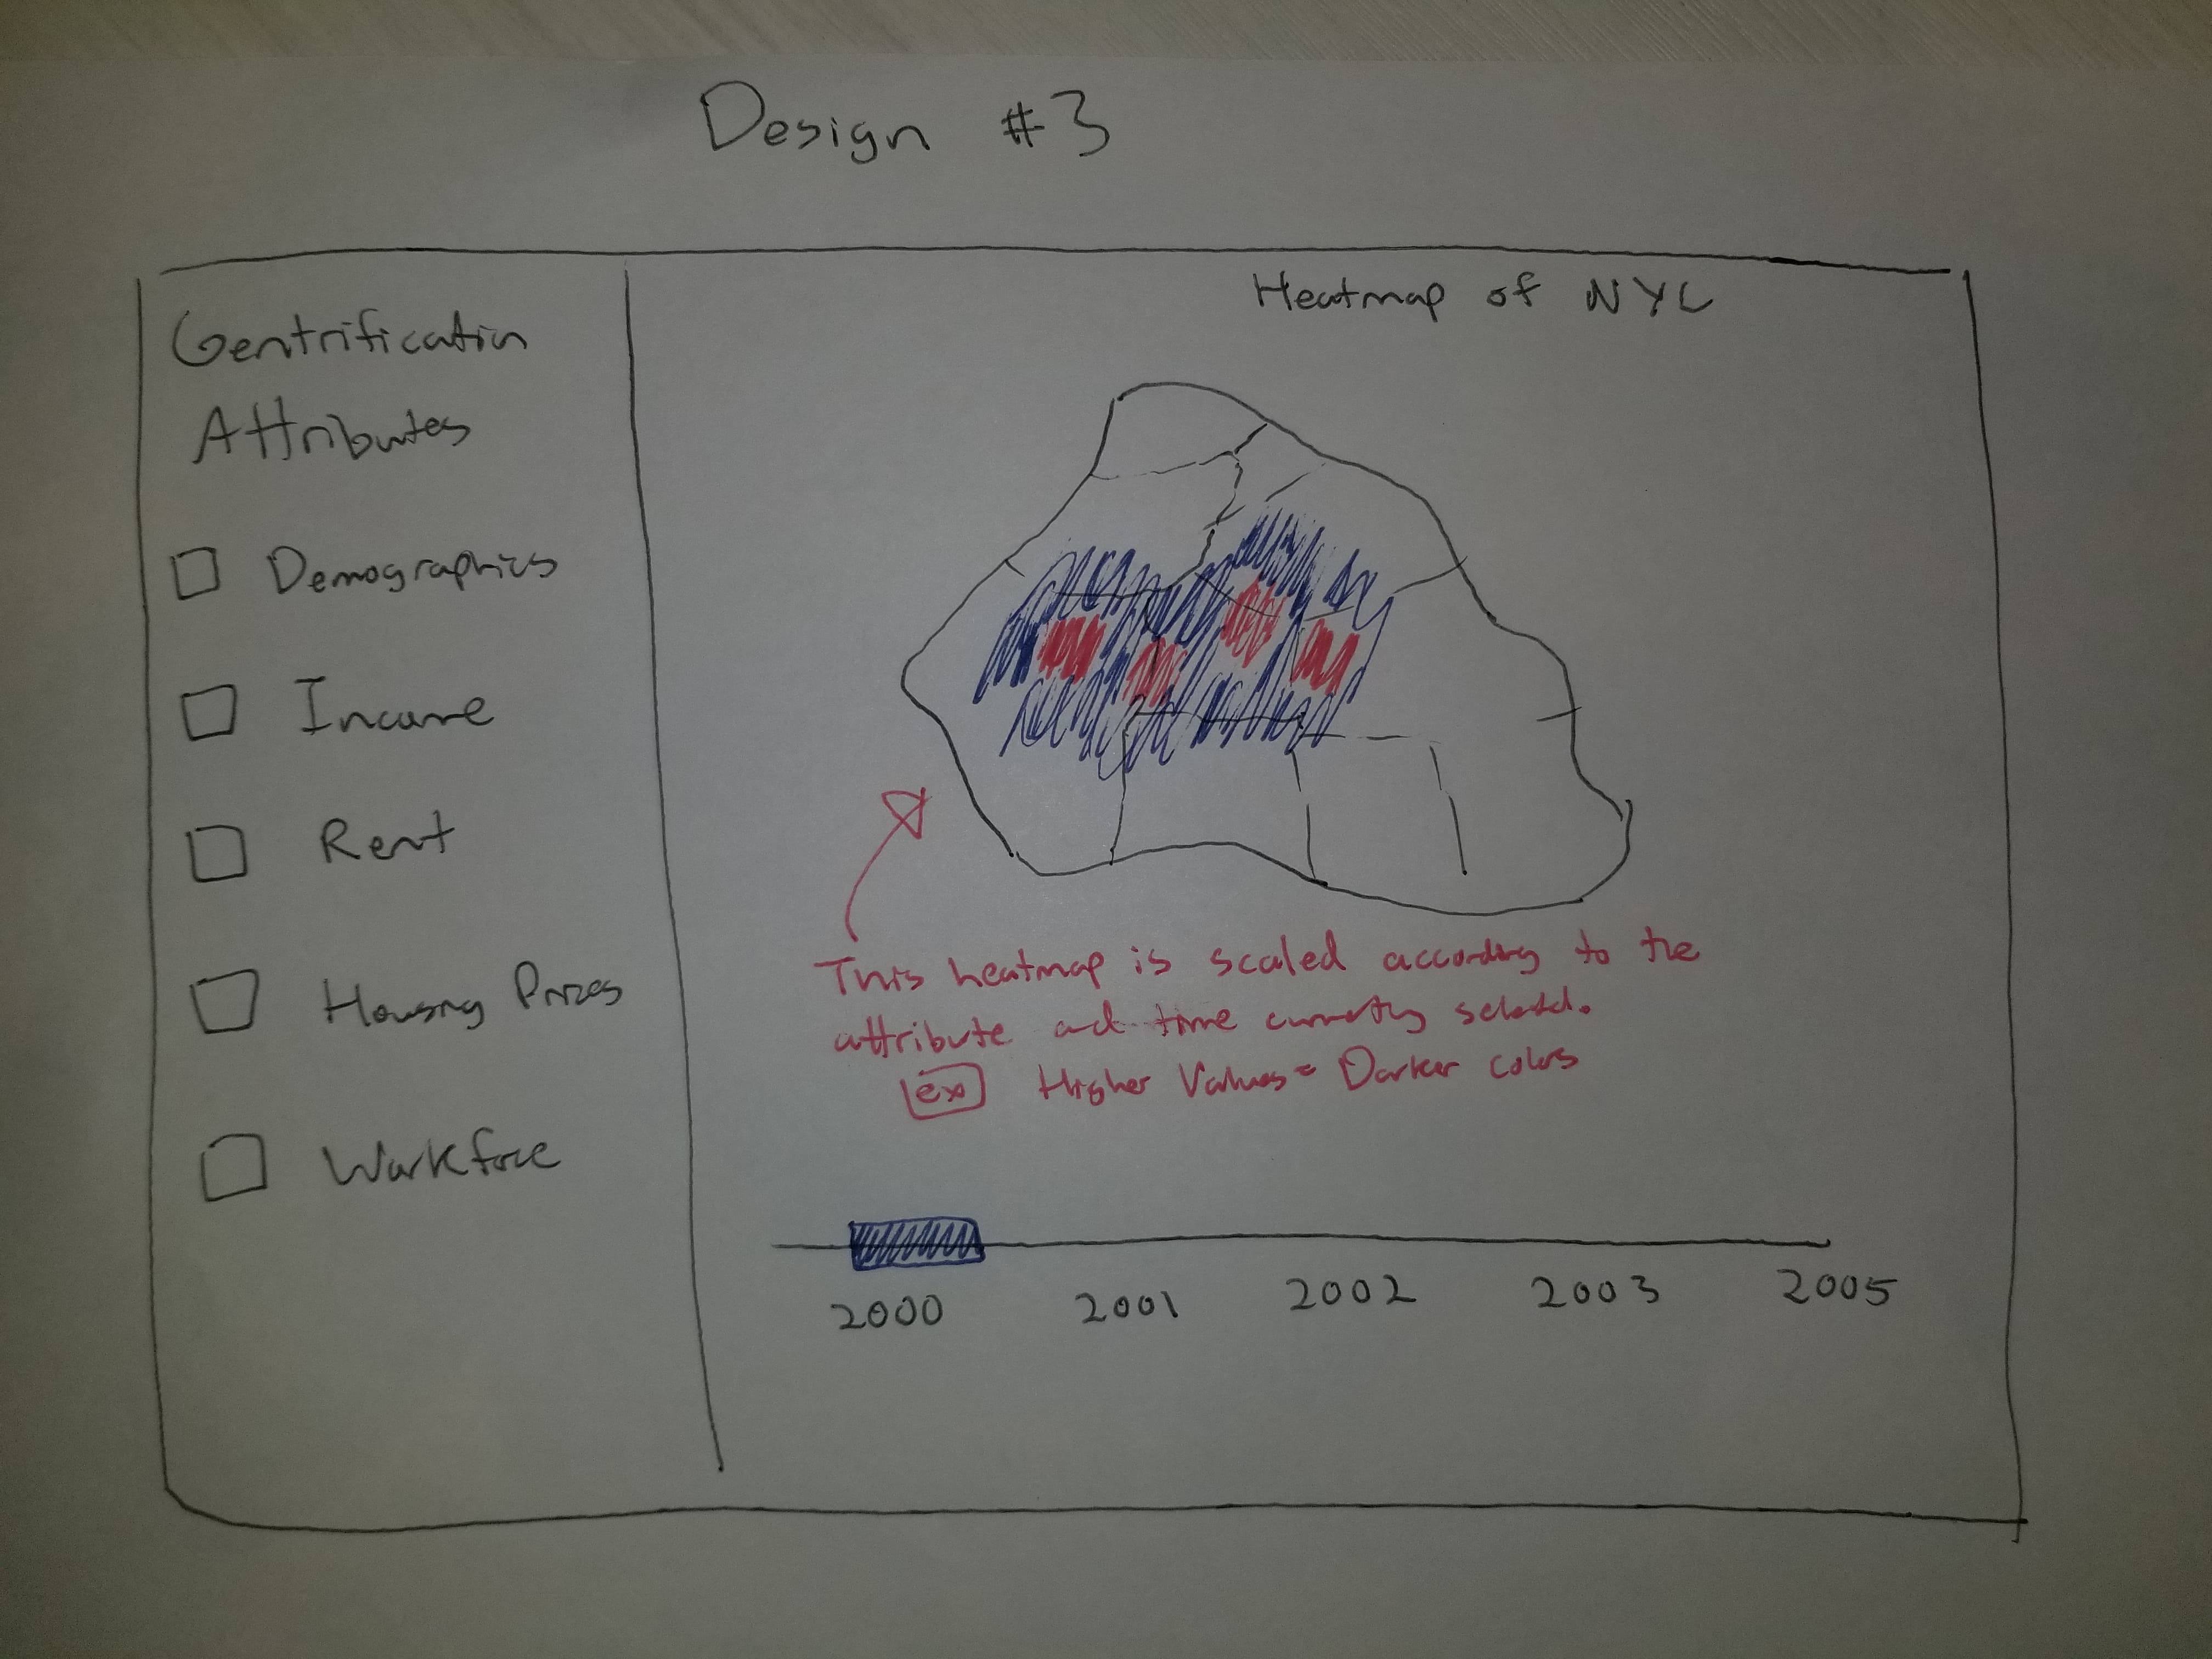 Design #3
Heatmap of NYC
Gentrification
Attributes
Demographics
Income
Rent
Housing Prizes
Workforce
This heatmap is scaled according to the
attribute and time currently selected.
ex Higher Values = Darker colors
2000 2001 2002 2003 2005